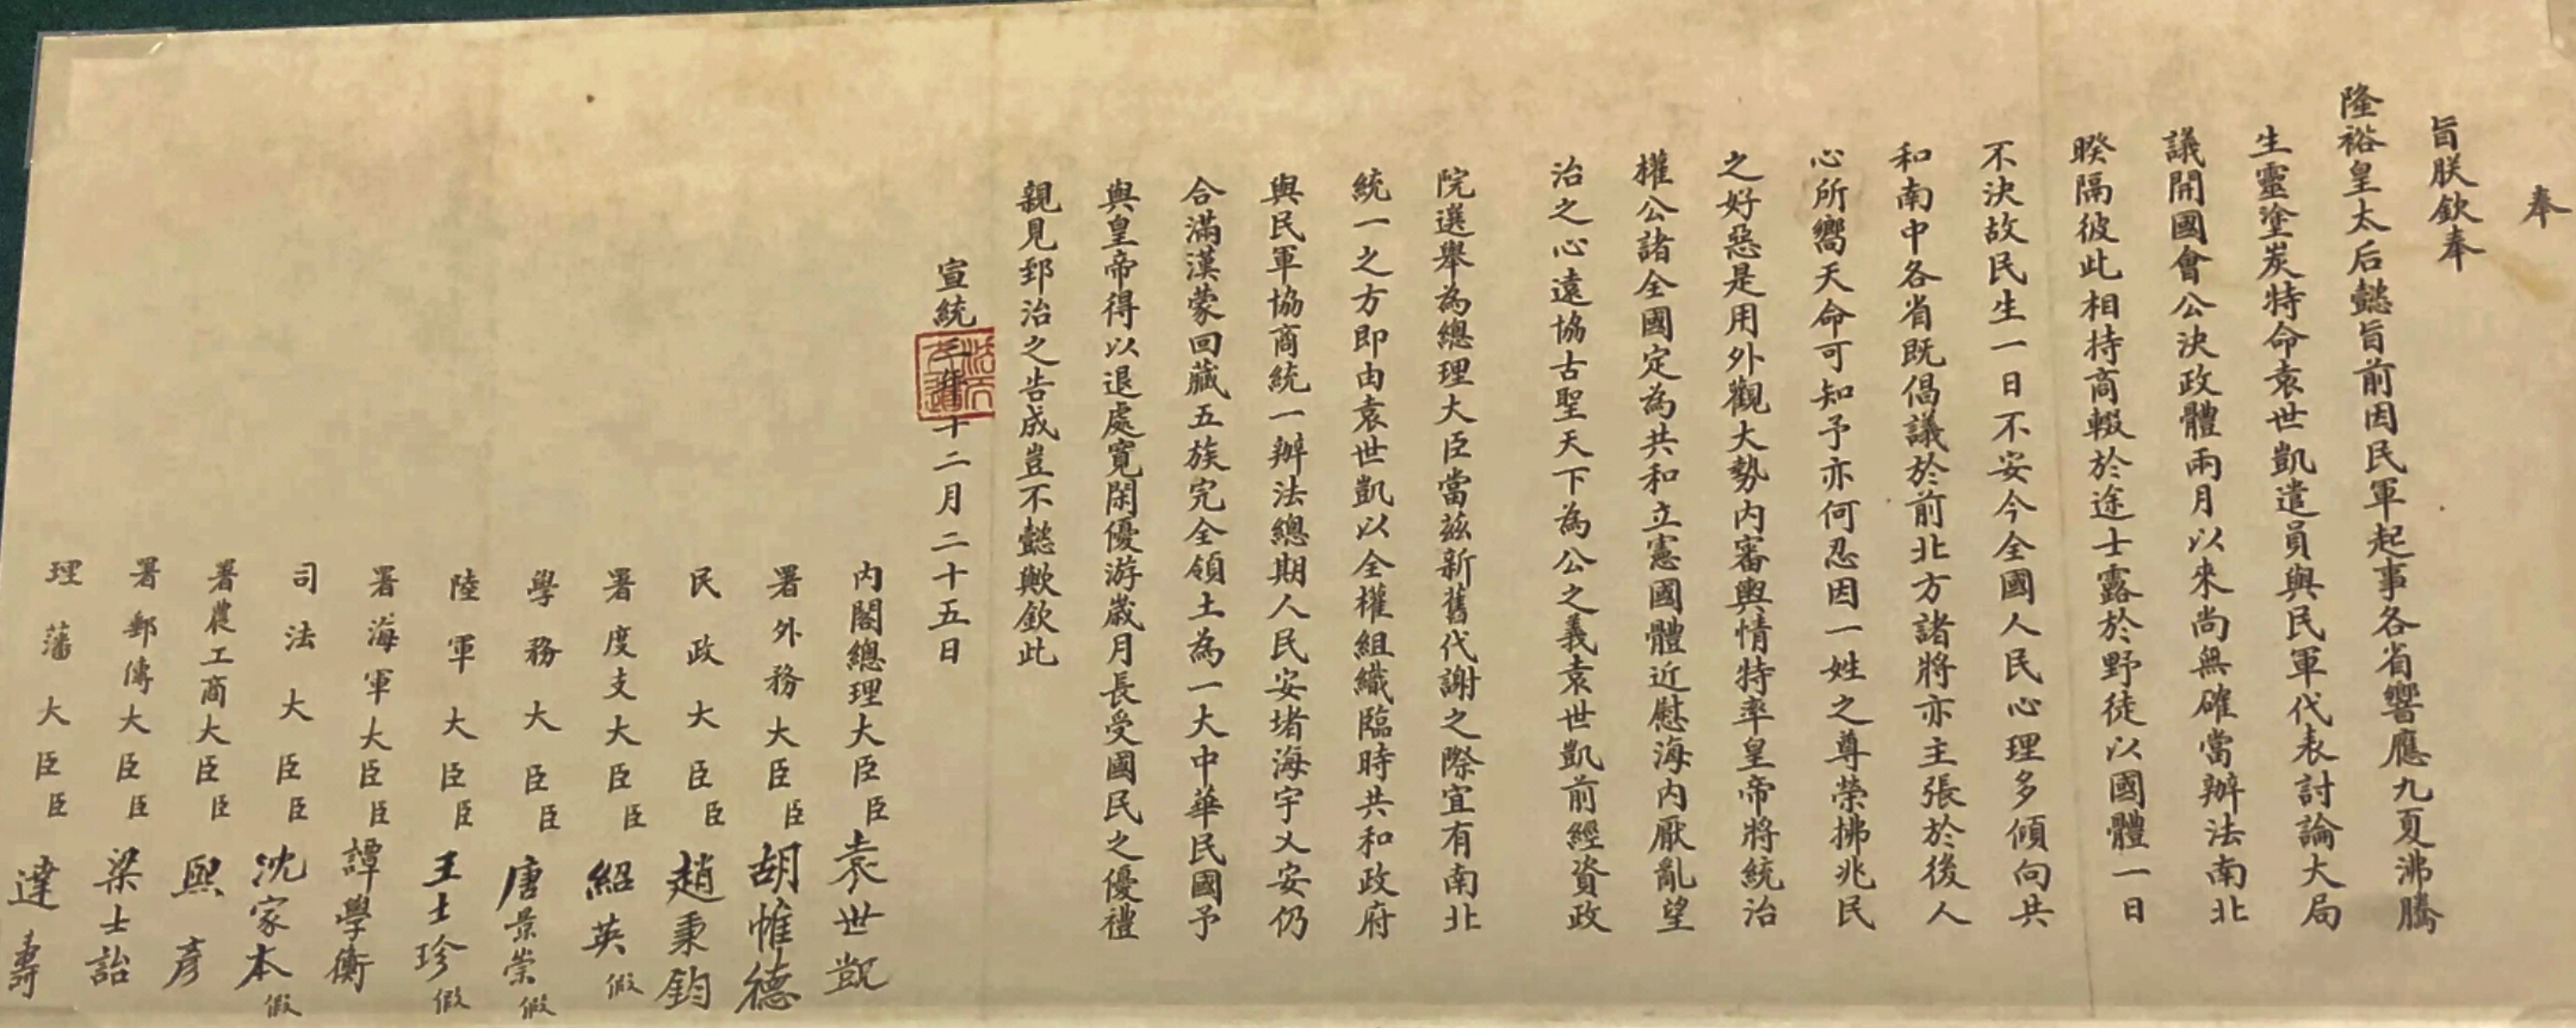 奉
旨朕欽奉
隆裕皇太后懿旨前因民軍起事各省響應九夏沸騰
生靈塗炭特命袁世凱遣員與民軍代表討論大局
議開國會公決政體兩月以來尚無確當辦法南北
暌隔彼此相持商輟於途士露於野徒以國體一日
不決故民生一日不安今全國人民心理多傾向共
和南中各省既倡議於前北方諸將亦主張於後人
心所嚮天命可知予亦何忍因一姓之尊榮拂兆民
之好惡是用外觀大勢內審輿情特率皇帝將統治
權公諸全國定為共和立憲國體近慰海內厭亂望
治之心遠協古聖天下為公之義袁世凱前經資政
院選舉為總理大臣當茲新舊代謝之際宜有南北
統一之方即由袁世凱以全權組織臨時共和政府
與民軍協商統一辦法總期人民安堵海宇乂安仍
合滿漢蒙回藏五族完全領土為一大中華民國予
與皇帝得以退處寬閑優游歲月長受國民之優禮
親見郅治之告成豈不懿歟欽此
宣統三年十二月二十五日
內閣總理大臣臣袁世凱
署外務大臣臣胡惟德
民政大臣臣趙秉鈞
署度支大臣臣紹英假
學務大臣臣唐景崇假
陸軍大臣臣王士珍假
署海軍大臣臣譚學衡
司法大臣臣沈家本假
署農工商大臣臣熙彥
署郵傳大臣臣梁士詒
理藩大臣臣達壽